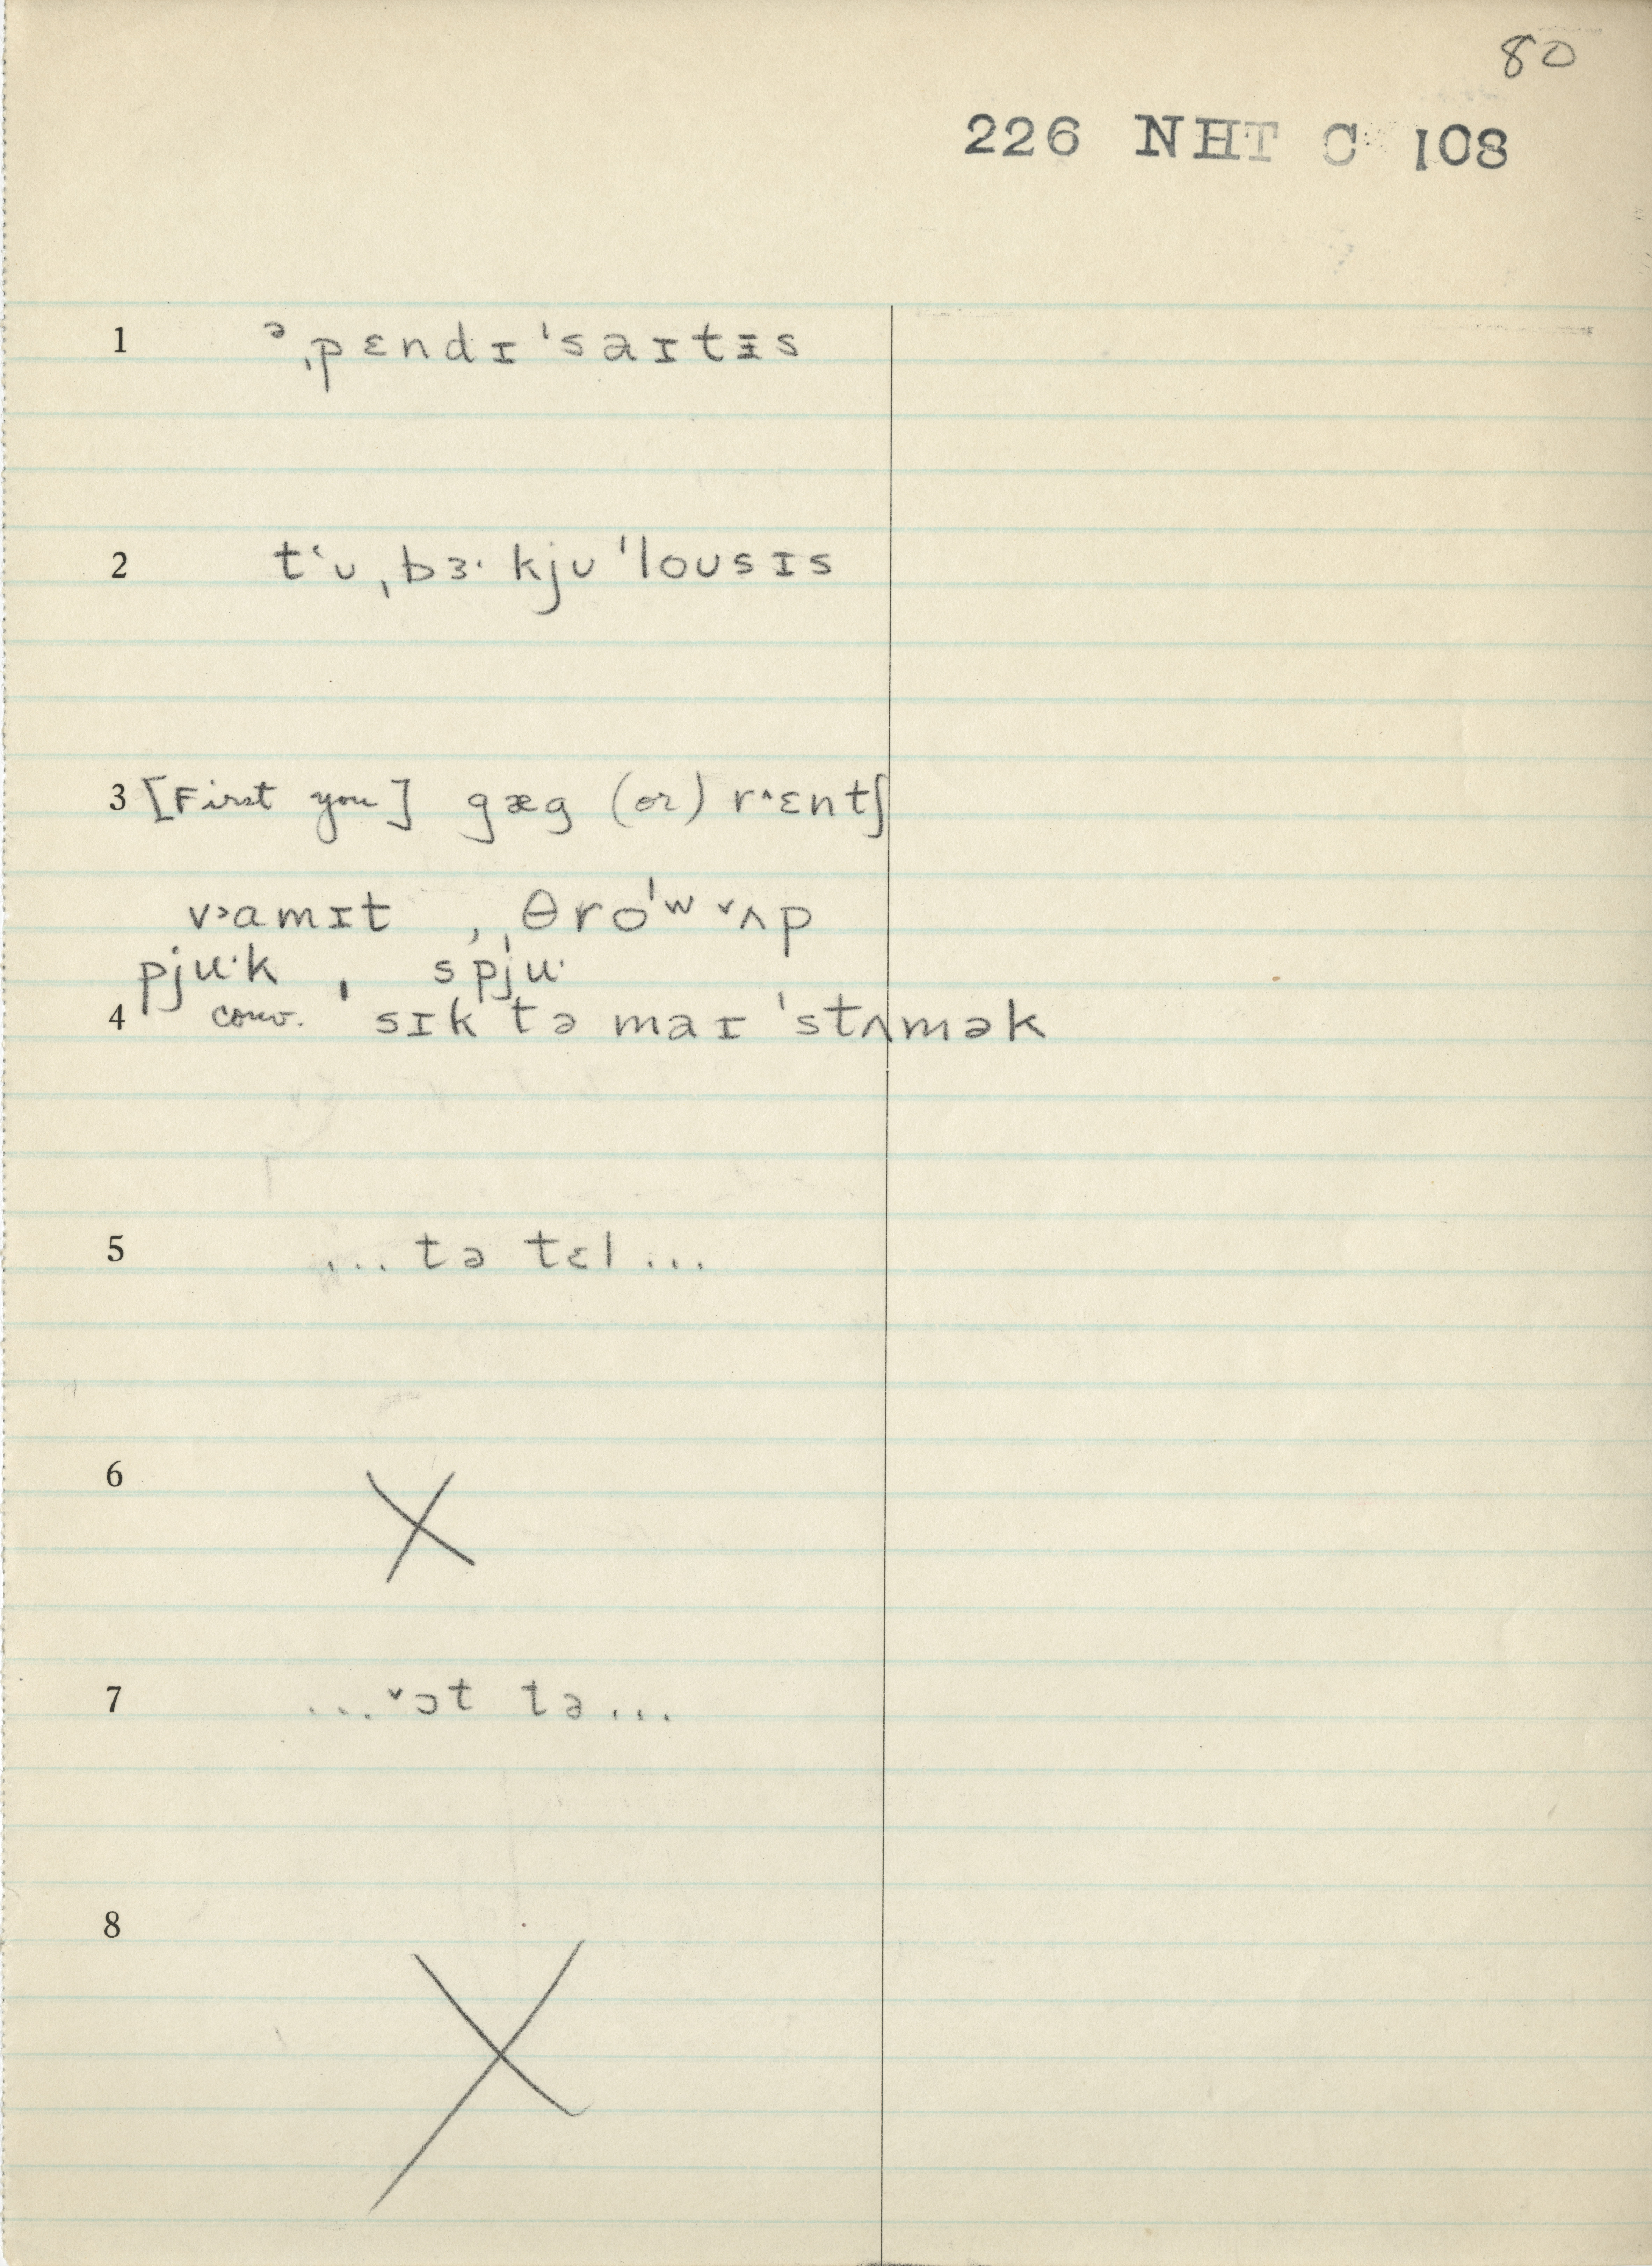 80
226 NHT C 108
1 ᵊˌpɛndɪˈsaɪtɪ̵s
2 tʻᴜˌbɜ· kjᴜˈloᴜsɪs
3 [First you] gæg (or) r˄ɛntʃ
v˃amɪt , ˌθroˈʷ ˅ʌp
pju·k , spju·
4 conv. ˈsɪk tə maɪ ˈstʌmək
5 ... tə tɛl ...
6 X
7 ... ˅ɔt tə ...
8 X